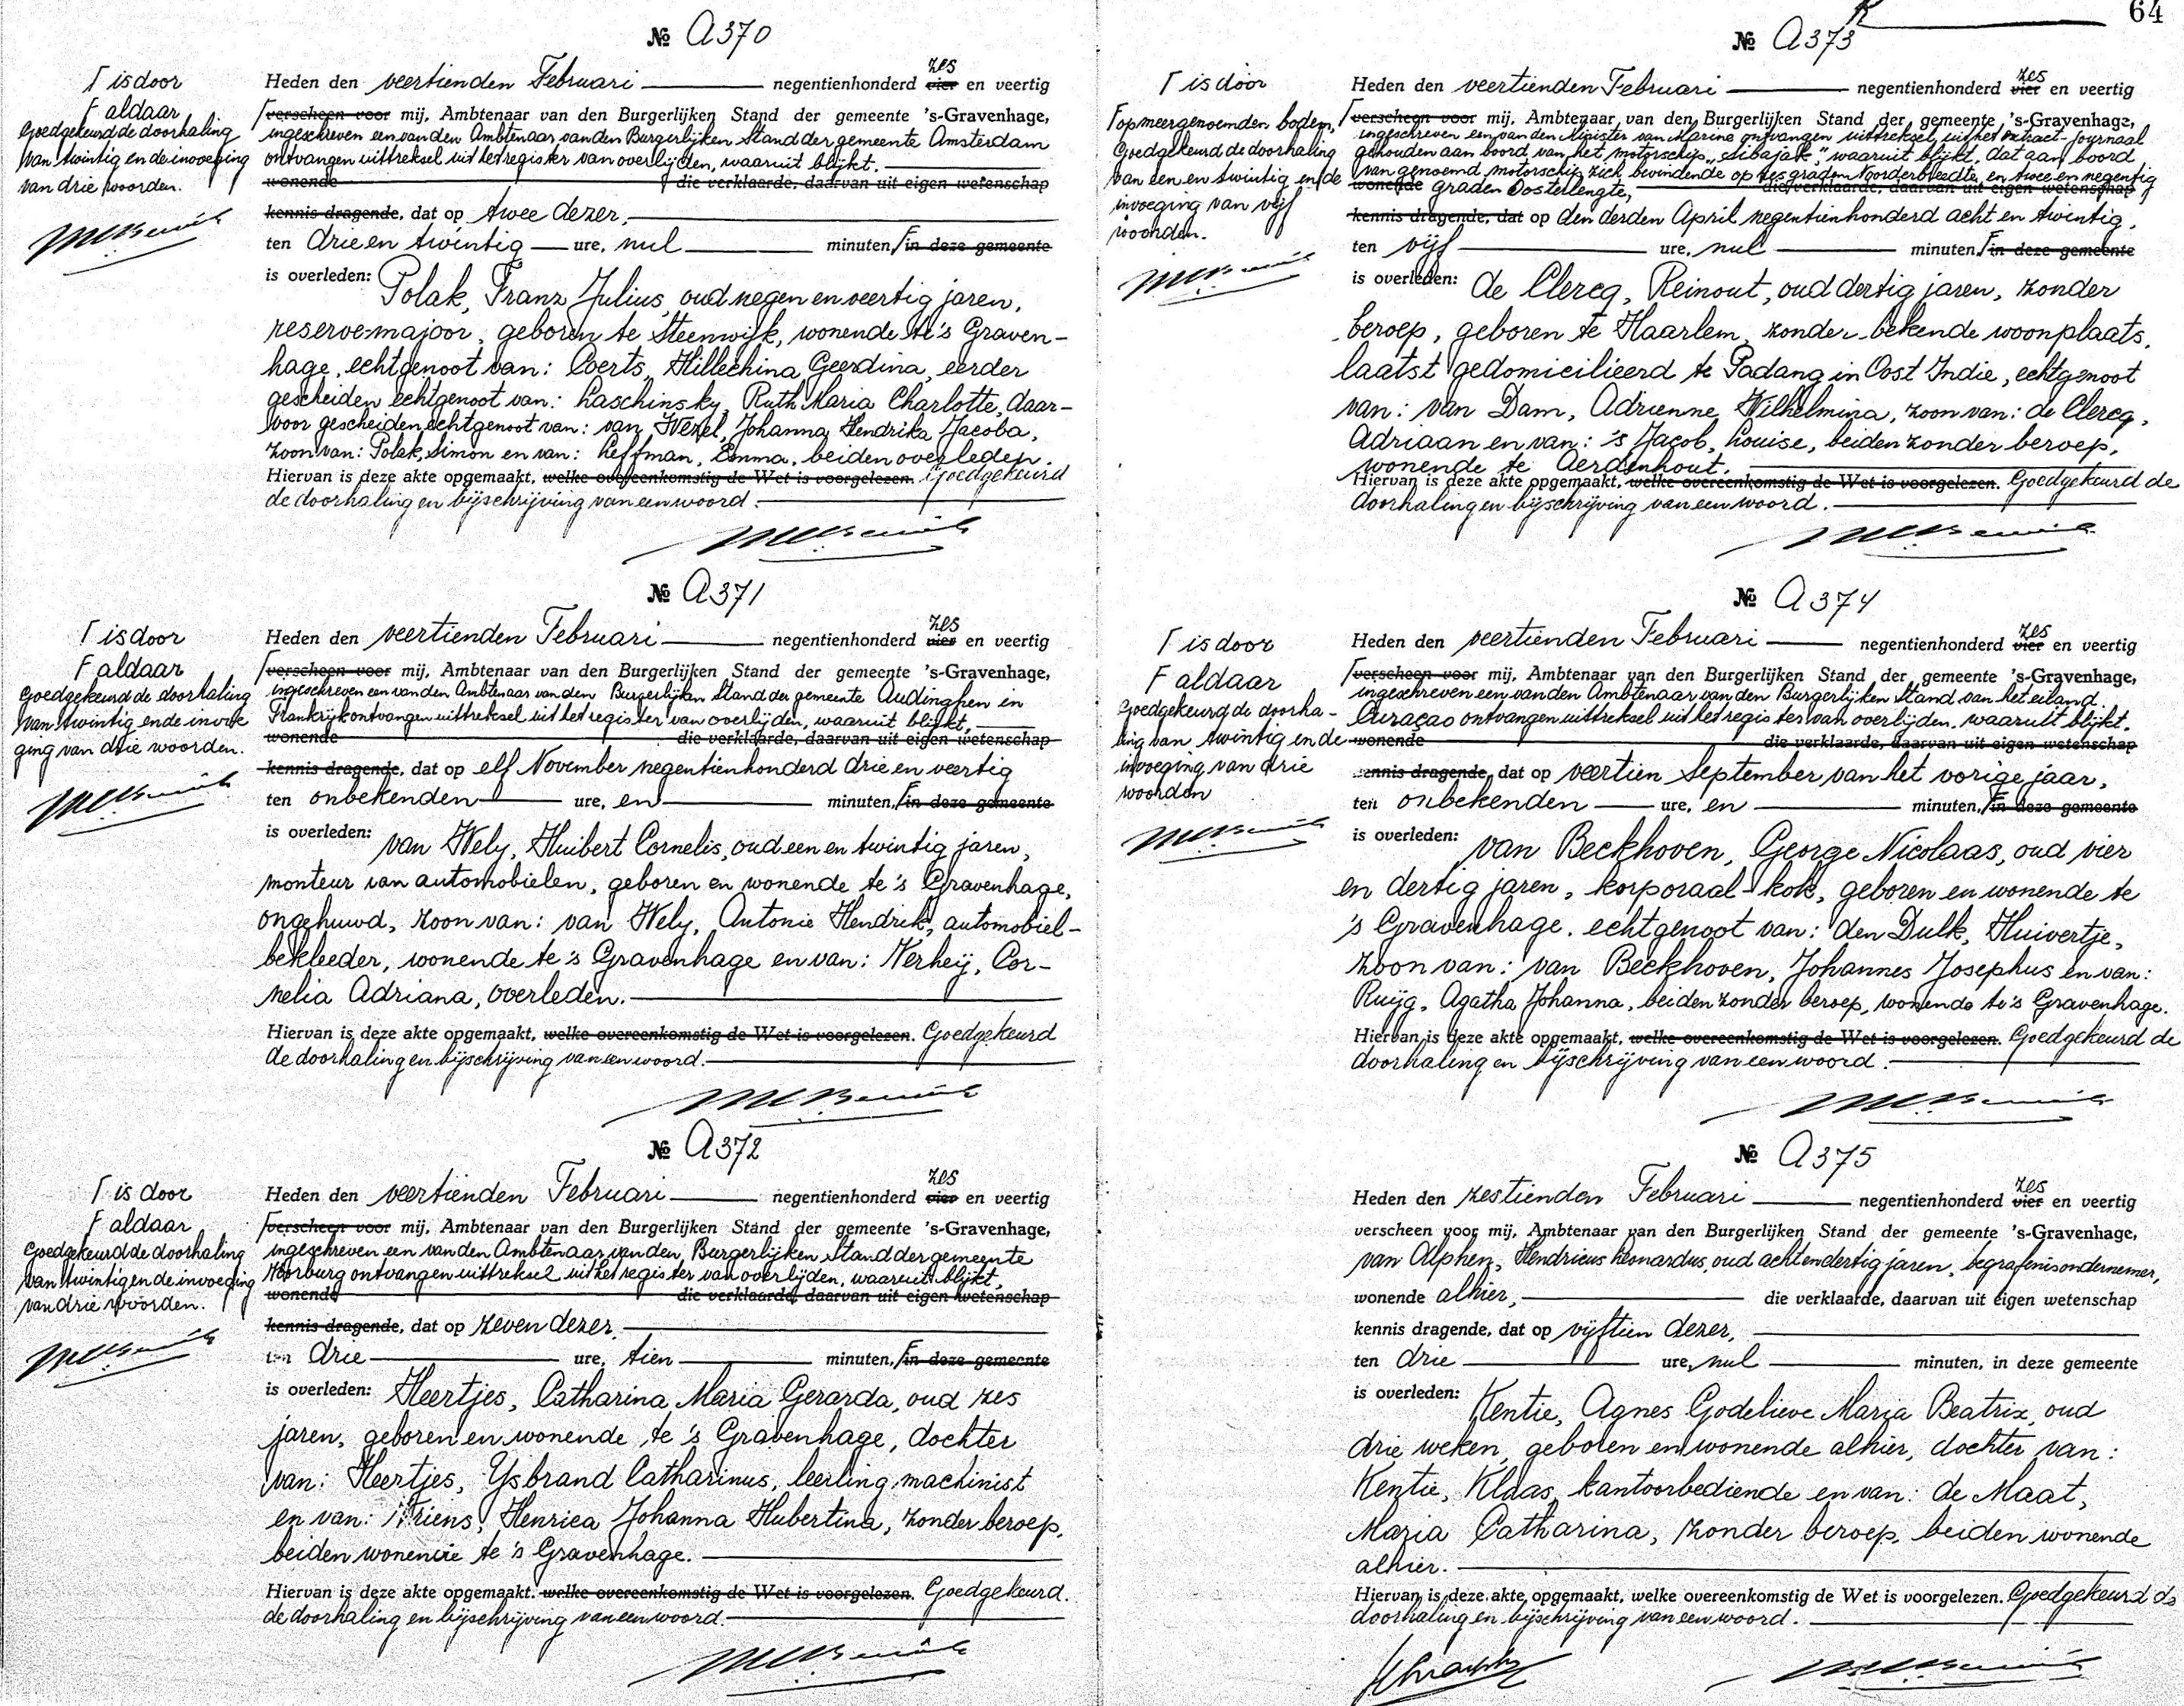 64
№ A370
Γ is door
F aldaar
Goedgekeurd de doorhaling
van twintig en de invoeging
van drie woorden.
Heden den veertienden Februari negentienhonderd vier zes en veertig
Γ verscheen voor mij, Ambtenaar van den Burgerlijken Stand der gemeente 's-Gravenhage,
ingeschreven een van den Ambtenaar van den Burgerlijken Stand der gemeente Amsterdam
ontvangen uittreksel uit het register van overlijden, waaruit blijkt.
wonende die verklaarde, daarvan uit eigen wetenschap
kennis dragende, dat op twee dezer,
ten drie en twintig ure, nul minuten, F in deze gemeente
is overleden: Polak, Franz Julius, oud negen en veertig jaren,
reserve-majoor, geboren te Steenwijk, wonende te 's Graven-
hage, echtgenoot van: Coerts, Hillechina Geerdina, eerder
gescheiden echtgenoot van: Laschinsky, Ruth Maria Charlotte, daar-
voor gescheiden echtgenoot van: van Wezel, Johanna Hendrika Jacoba,
zoon van: Polak, Simon en van: Leffman, Emma, beiden overleden.
Hiervan is deze akte opgemaakt, welke overeenkomstig de Wet is voorgelezen. Goedgekeurd
de doorhaling en bijschrijving van een woord.
№ A371
Γ is door
F aldaar
Goedgekeurd de doorhaling
van twintig en de invoe
ging van drie woorden.
Heden den veertienden Februari negentienhonderd vier zes en veertig
Γ verscheen voor mij, Ambtenaar van den Burgerlijken Stand der gemeente 's-Gravenhage,
ingeschreven een van den Ambtenaar van den Burgerlijken Stand der gemeente Audinghen in
Frankrijk ontvangen uittreksel uit het register van overlijden, waaruit blijkt,
wonende die verklaarde, daarvan uit eigen wetenschap
kennis dragende, dat op elf November negentienhonderd drie en veertig
ten onbekenden ure, en minuten, F in deze gemeente
is overleden: van Wely, Huibert Cornelis, oud een en twintig jaren,
monteur van automobielen, geboren en wonende te 's Gravenhage,
ongehuwd, zoon van: van Wely, Antonie Hendrik, automobiel-
bekleeder, wonende te 's Gravenhage en van: Verheij, Cor-
nelia Adriana, overleden.
Hiervan is deze akte opgemaakt, welke overeenkomstig de Wet is voorgelezen. Goedgekeurd
de doorhaling en bijschrijving van een woord.
№ A372
Γ is door
F aldaar
Goedgekeurd de doorhaling
van twintig en de invoeging
van drie woorden.
Heden den veertienden Februari negentienhonderd vier zes en veertig
Γ verscheen voor mij, Ambtenaar van den Burgerlijken Stand der gemeente 's-Gravenhage,
ingeschreven een van den Ambtenaar van den Burgerlijken Stand der gemeente
Voorburg ontvangen uittreksel uit het register van overlijden, waaruit blijkt,
wonende die verklaarde, daarvan uit eigen wetenschap
kennis dragende, dat op zeven dezer,
ten drie ure, tien minuten, F in deze gemeente
is overleden: Heertjes, Catharina Maria Gerarda, oud zes
jaren, geboren en wonende te 's Gravenhage, dochter
van: Heertjes, Ysbrand Catharinus, leerling machinist
en van: Friens, Henrica Johanna Hubertina, zonder beroep,
beiden wonende te 's Gravenhage.
Hiervan is deze akte opgemaakt, welke overeenkomstig de Wet is voorgelezen. Goedgekeurd.
de doorhaling en bijschrijving van een woord.
№ A373
Γ is door
F op meergenoemden bodem,
Goedgekeurd de doorhaling
van een en twintig en de
invoeging van vijf
woorden.
Heden den veertienden Februari negentienhonderd vier zes en veertig
Γ verscheen voor mij, Ambtenaar van den Burgerlijken Stand der gemeente 's-Gravenhage,
ingeschreven een van den Minister van Marine ontvangen uittreksel uit het extract-journaal
gehouden aan boord van het motorschip "Sibajak", waaruit blijkt, dat aan boord
van genoemd motorschip zich bevindende op zes graden Noorderbreedte en twee en negentig
wonende graden Oosterlengte, die verklaarde, daarvan uit eigen wetenschap
kennis dragende, dat op den derden April negentienhonderd acht en twintig,
ten vijf ure, nul minuten, F in deze gemeente
is overleden: de Clercq, Reinout, oud dertig jaren, zonder
beroep, geboren te Haarlem, zonder bekende woonplaats,
laatst gedomicilieerd te Padang in Oost Indie, echtgenoot
van: van Dam, Adrienne Wilhelmina, zoon van: de Clercq,
Adriaan en van: 's Jacob, Louise, beiden zonder beroep,
wonende te Aerdenhout.
Hiervan is deze akte opgemaakt, welke overeenkomstig de Wet is voorgelezen. Goedgekeurd de
doorhaling en bijschrijving van een woord.
№ A374
Γ is door
F aldaar
Goedgekeurd de doorha-
ling van twintig en de
invoeging van drie
woorden
Heden den veertienden Februari negentienhonderd vier zes en veertig
Γ verscheen voor mij, Ambtenaar van den Burgerlijken Stand der gemeente 's-Gravenhage,
ingeschreven een van den Ambtenaar van den Burgerlijken Stand van het eiland
Curaçao ontvangen uittreksel uit het register van overlijden, waaruit blijkt.
wonende die verklaarde, daarvan uit eigen wetenschap
kennis dragende, dat op veertien September van het vorige jaar,
ten onbekenden ure, en minuten, F in deze gemeente
is overleden: van Beckhoven, George Nicolaas, oud vier
en dertig jaren, korporaal-kok, geboren en wonende te
's Gravenhage, echtgenoot van: den Dulk, Huivertje,
zoon van: van Beckhoven, Johannes Josephus en van:
Ruijg, Agatha Johanna, beiden zonder beroep, wonende te 's Gravenhage.
Hiervan is deze akte opgemaakt, welke overeenkomstig de Wet is voorgelezen. Goedgekeurd de
doorhaling en bijschrijving van een woord.
№ A375
Heden den zestienden Februari negentienhonderd vier zes en veertig
verscheen voor mij, Ambtenaar van den Burgerlijken Stand der gemeente 's-Gravenhage,
van Alphen, Hendricus Leonardus, oud acht en dertig jaren, begrafenisondernemer,
wonende alhier, die verklaarde, daarvan uit eigen wetenschap
kennis dragende, dat op vijftien dezer,
ten drie ure, nul minuten, in deze gemeente
is overleden: Kentie, Agnes Godelieve Maria Beatrix, oud
drie weken, geboren en wonende alhier, dochter van:
Kentie, Klaas, kantoorbediende en van: de Maat,
Maria Catharina, zonder beroep, beiden wonende
alhier.
Hiervan is deze akte opgemaakt, welke overeenkomstig de Wet is voorgelezen. Goedgekeurd de
doorhaling en bijschrijving van een woord.